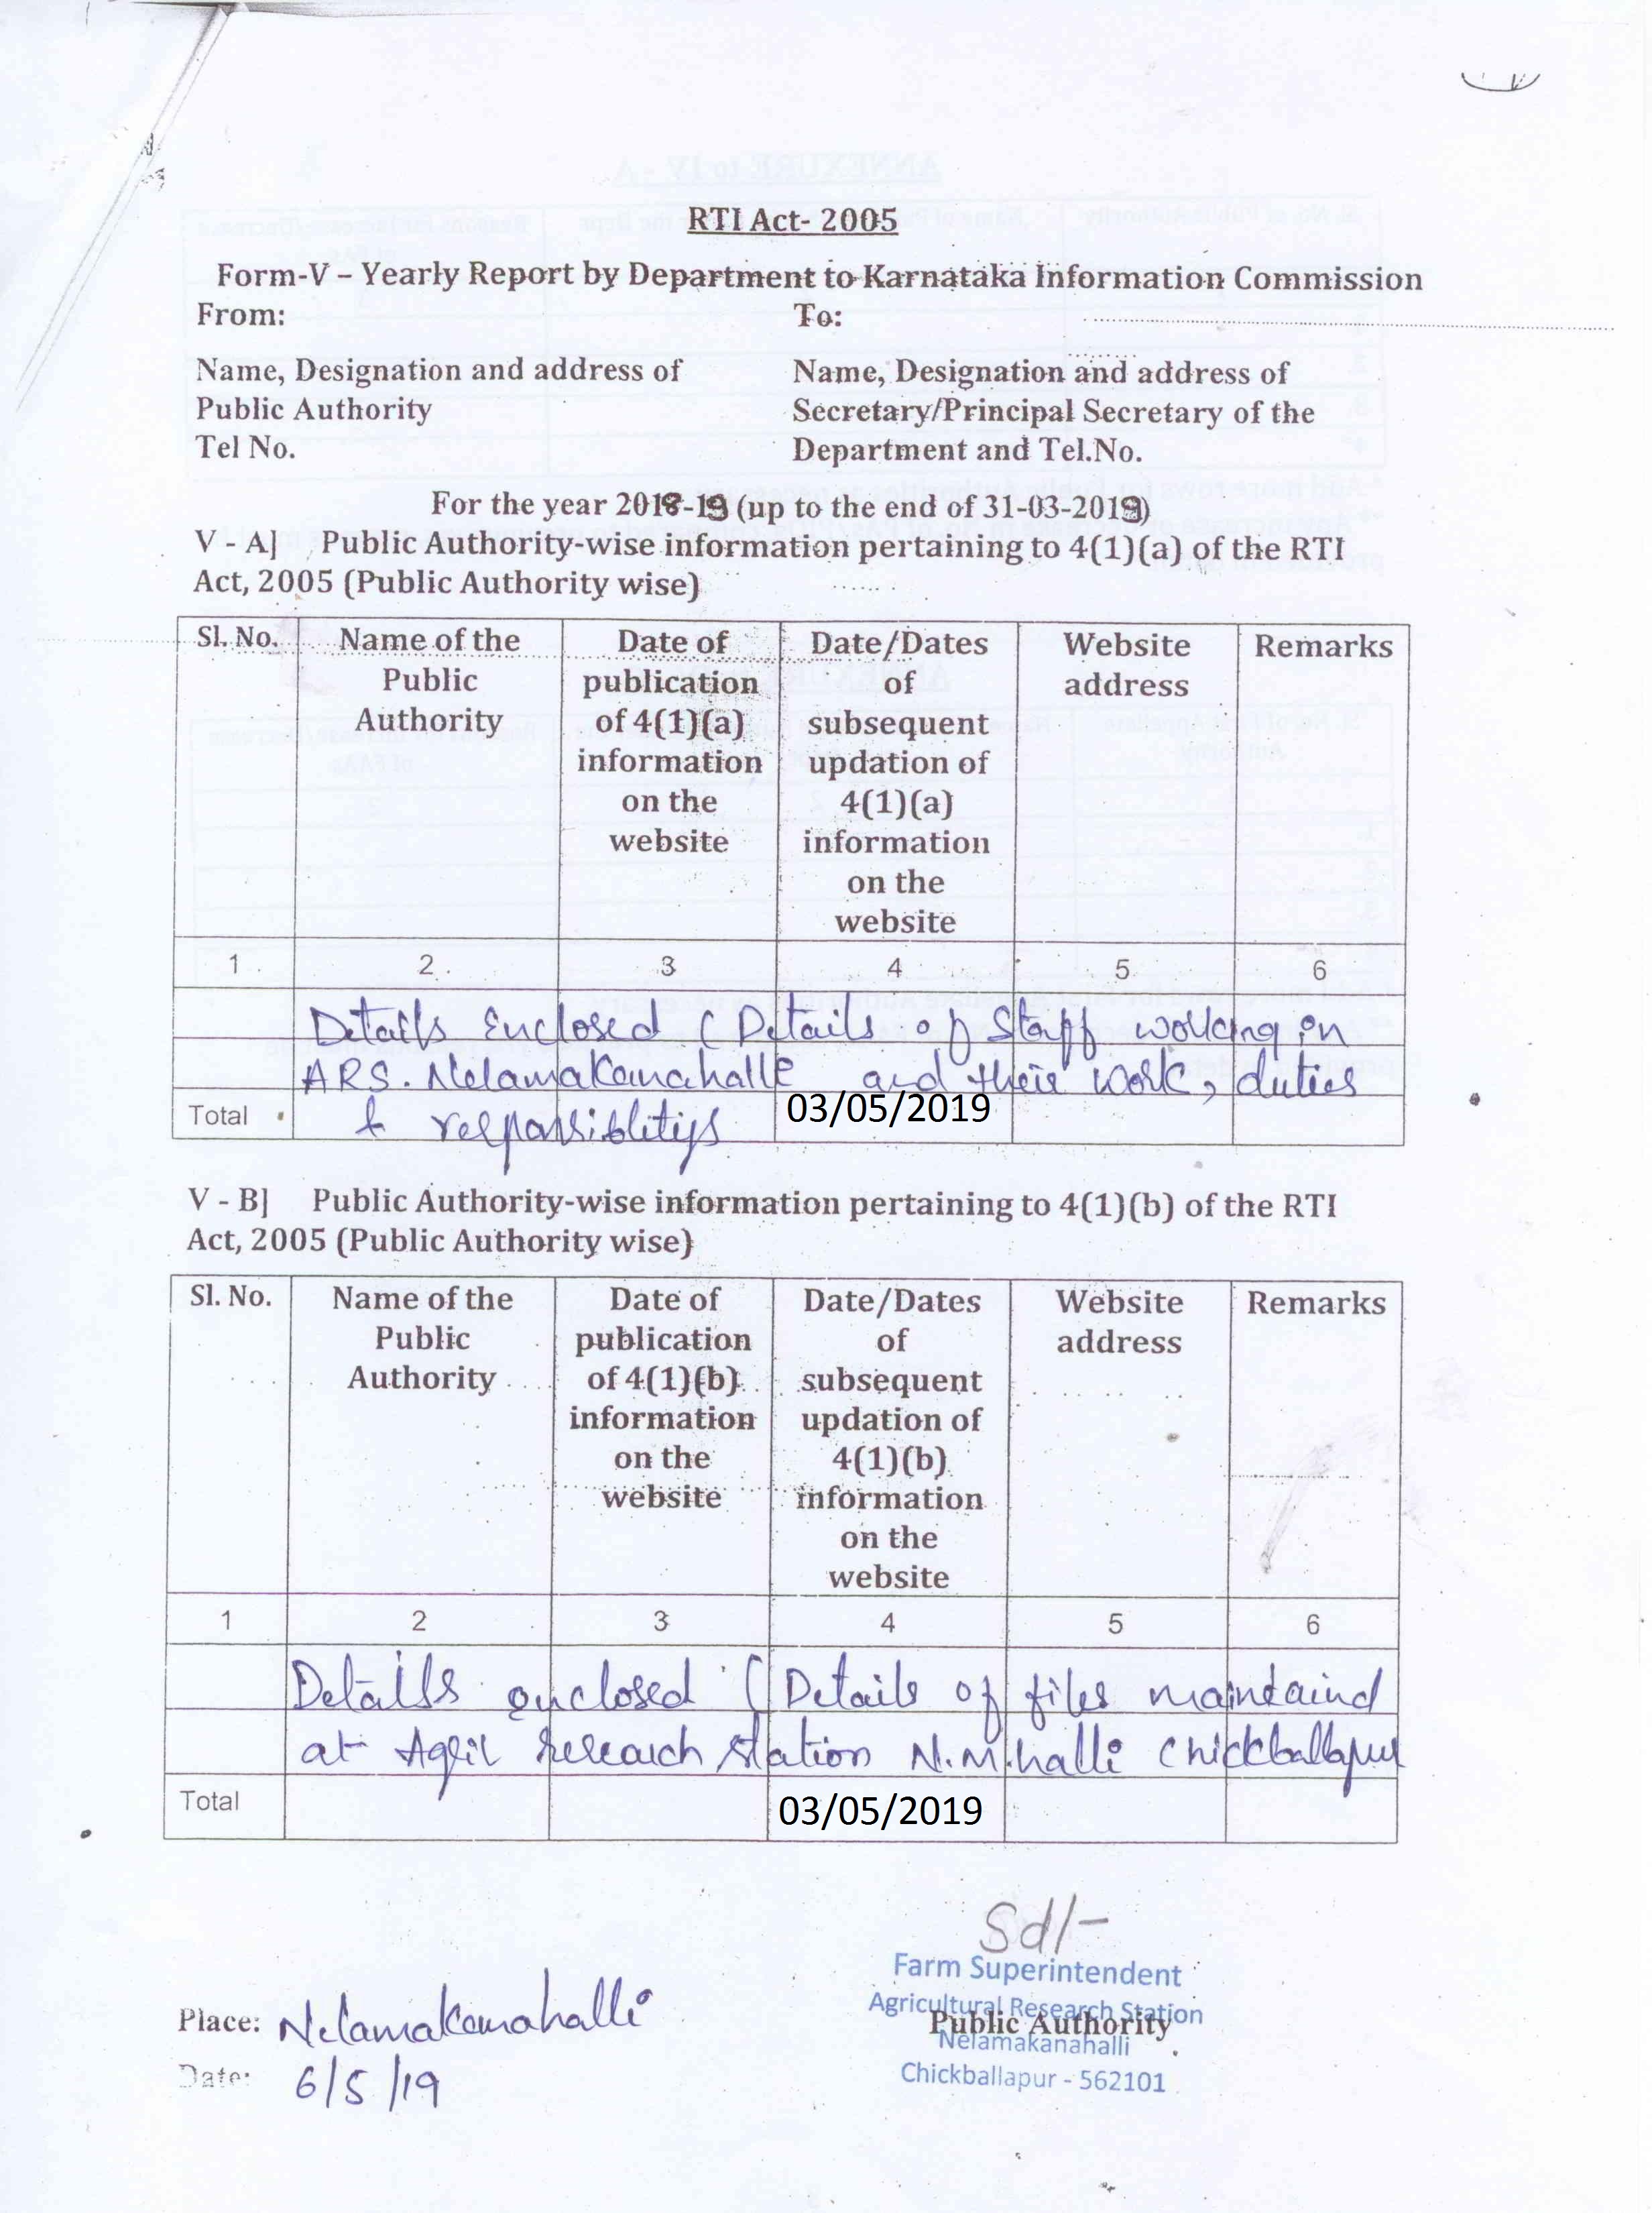 RTI Act- 2005
Form-V – Yearly Report by Department to Karnataka Information Commission
From: To:
Name, Designation and address of Public Authority Tel No.
Name, Designation and address of Secretary/Principal Secretary of the Department and Tel.No.
For the year 2018-19 (up to the end of 31-03-2019)
V - A] Public Authority-wise information pertaining to 4(1)(a) of the RTI
Act, 2005 (Public Authority wise)
Sl. No. Name of the Public Authority Date of publication of 4(1)(a) information on the website Date/Dates of subsequent updation of 4(1)(a) information on the website Website address Remarks
1 2 3 4 5 6
Details enclosed ( Details of staff working in
ARS. Nelamakanahalli and their work, duties
Total & responsiblitiys 03/05/2019
V - B] Public Authority-wise information pertaining to 4(1)(b) of the RTI
Act, 2005 (Public Authority wise)
Sl. No. Name of the Public Authority Date of publication of 4(1)(b) information on the website Date/Dates of subsequent updation of 4(1)(b) information on the website Website address Remarks
1 2 3 4 5 6
Details enclosed ( Details of files maintaind
at Agril Research station N.M.halli Chickballapur
Total 03/05/2019
Sd/-
Farm Superintendent
Agricultural Research Station
Public Authority
Nelamakanahalli
Chickballapur - 562101
Place: Nelamakanahalli
Date: 6/5/19